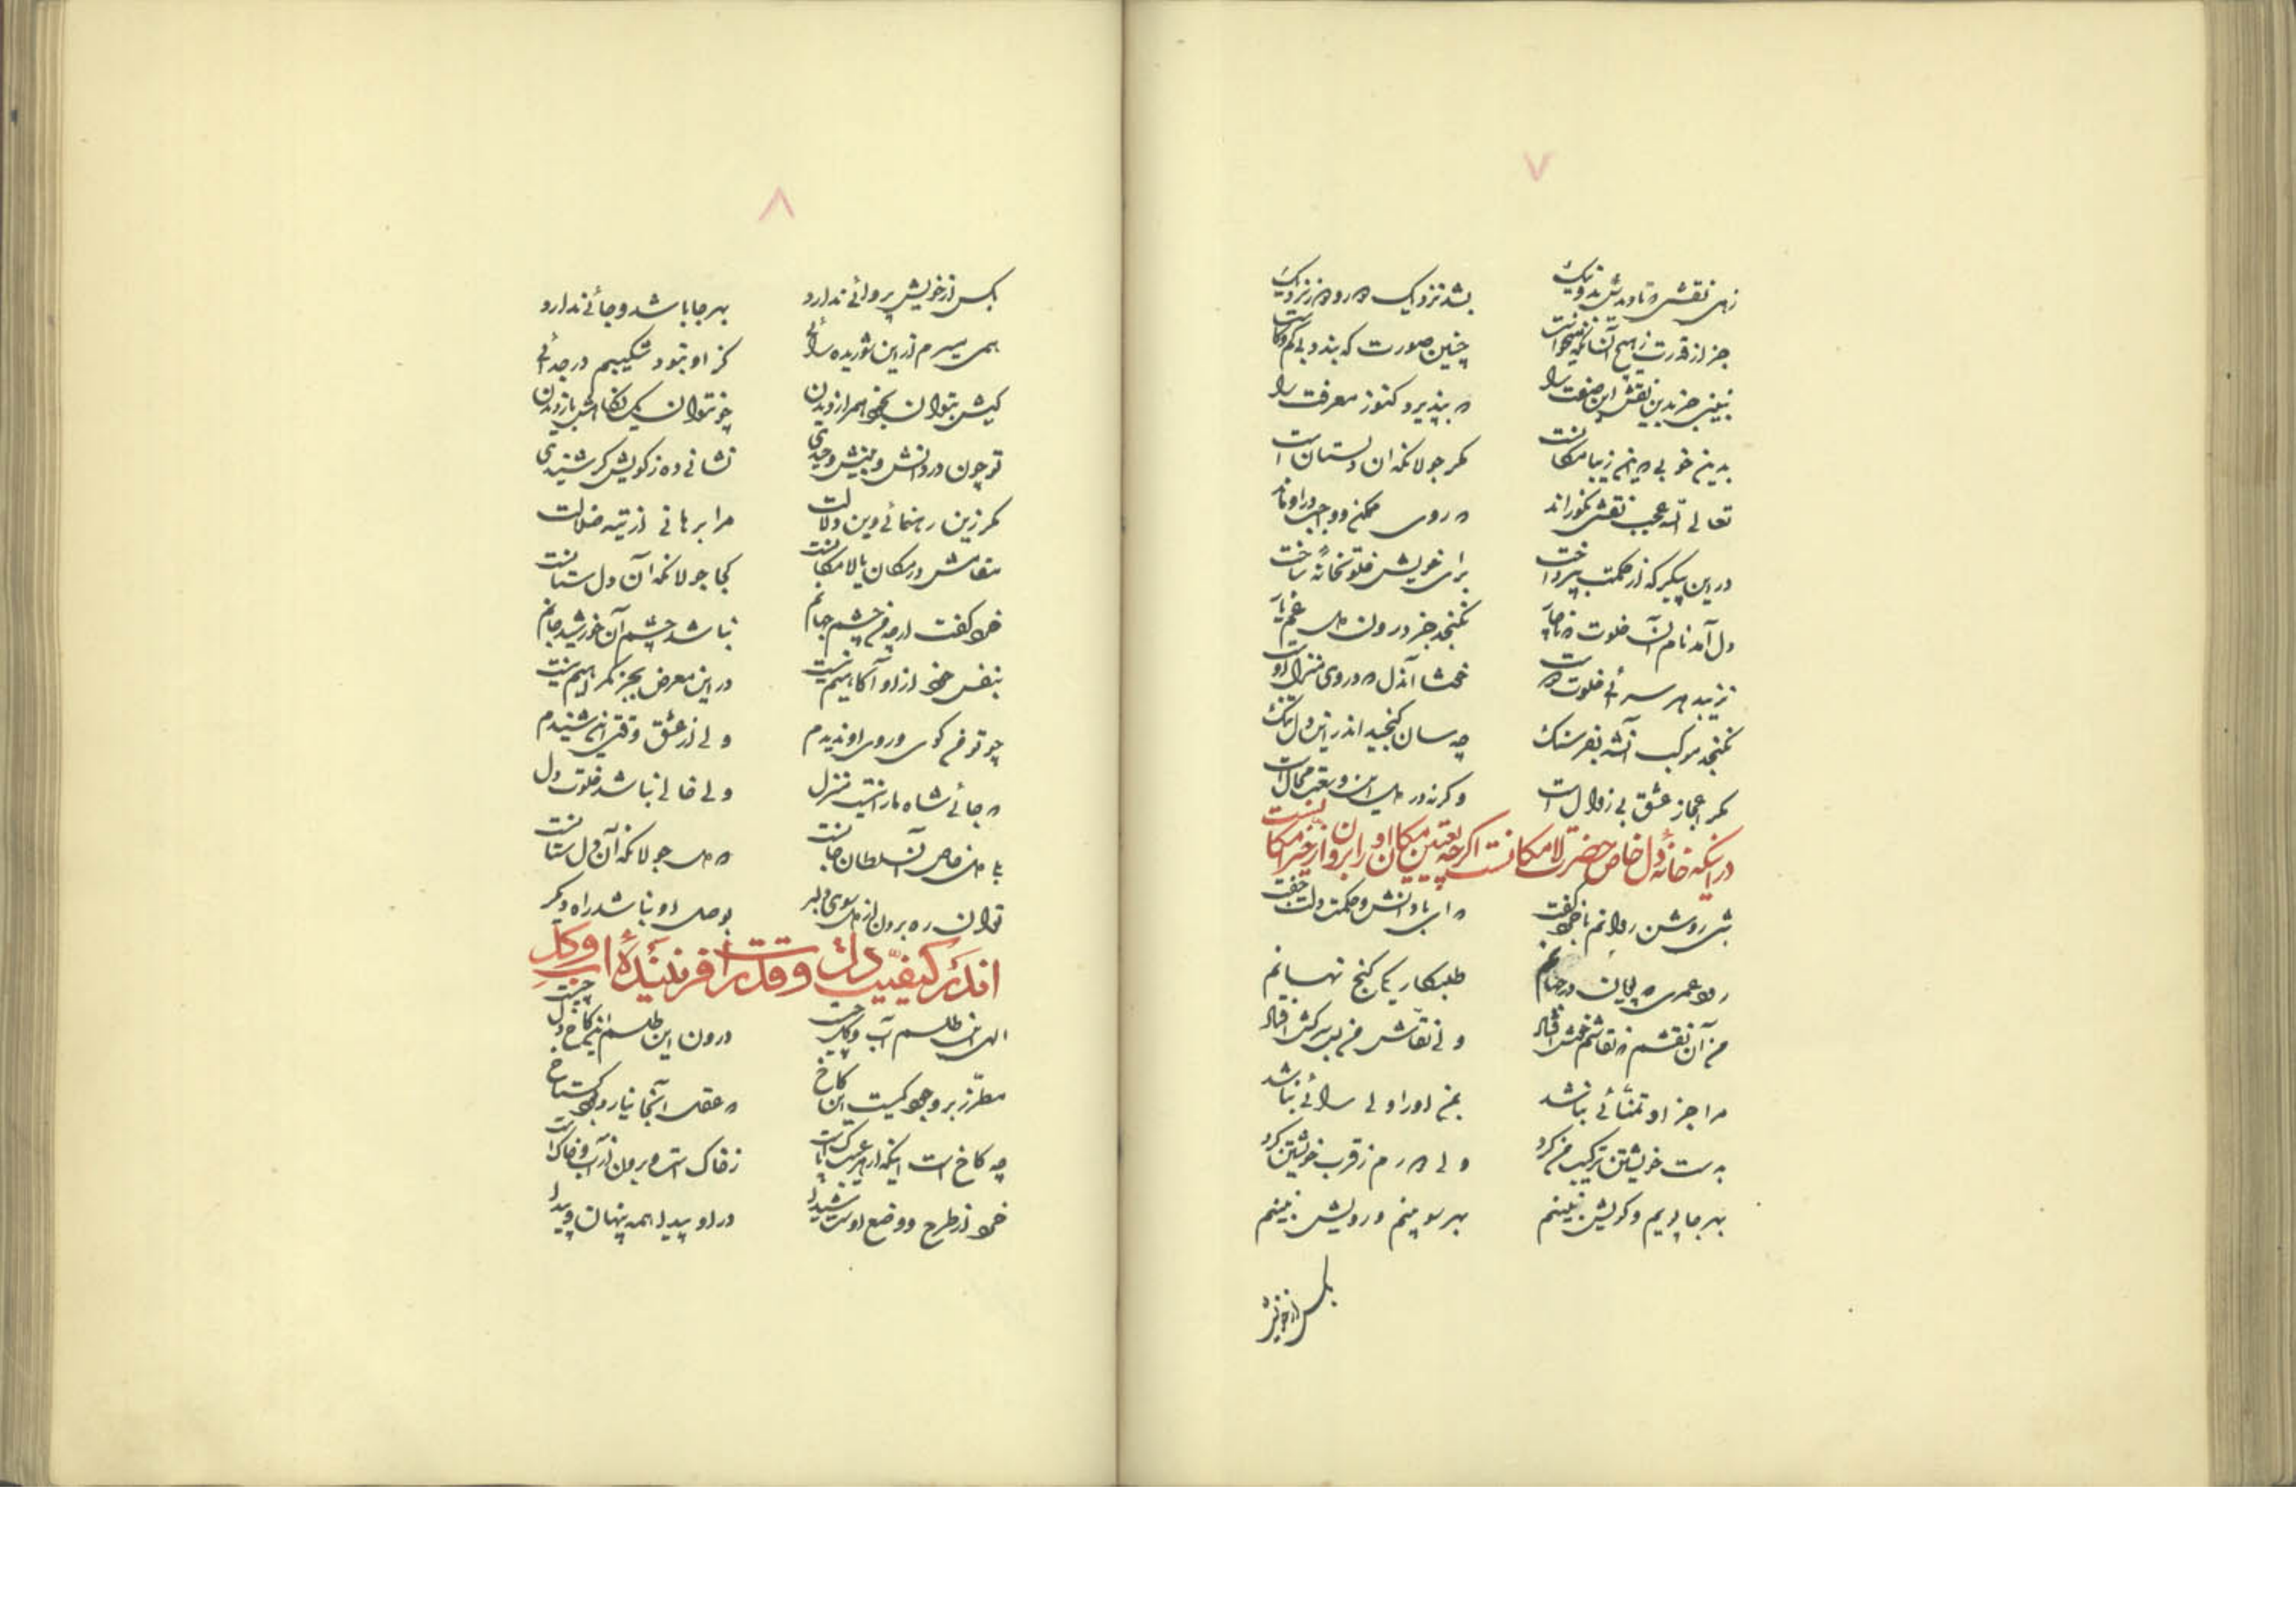 ۷
زهی نقشی که تا دیدش بد و نیک بشد نزدیک و دور و دور نزدیک
جز از قدرت ز هیچ آن چنین صورت که بندد بی کم و کاست
نبینی جز بدین نقش این صفت را که بپذیرد کنوز معرفت را
بدین خوبی که اینم زیبا مکانست مگر جولانگه آن دلستان است
تعالی الله عجب نقشی نکو راند که روی ممکن و واجب در او ماند
در این پیکر که از حکمت بپرداخت برای خویش خلوتخانهٔ ساخت
دل آمد نام آن خلوت نگنجد جز درون دل غم یار
نزیبد هر سرائی خلوت دوست خوشا آندل که در وی منزل اوست
نگنجد موکب آنشه بفرسنگ چه سان گنجید اندر این دل تنگ
مگر اعجاز عشق بی زوال است وگرنه در دل این وسعت محال است
در اینکه خانهٔ دل خاص حضرت لامکانست اگرچه بتعیین مکان او را بروان از خبر امکان نیست
شبی روشن روانم با خرد گفت که ای با دانش و حکمت دلت جفت
رود عمری که پویان در جهانم طلبکار یکی گنج نهانم
من آن نقشم که نقاشم خوش افتاد ولی نقاش من بس سرکش افتاد
مرا جز او تمنائی نباشد بمن او را ولی رائی نباشد
بدست خویشتن ترکیب من کرد ولی دورم ز قرب خویشتن کرد
بهرجا پویم و کویش نبینم بهر سو بینم و رویش نبینم
بکس از خویش
۸
بکس از خویش پروائی ندارد بهر جا باشد و جائی ندارد
همی پرسم از این شوریده رائی کز او نبود شکیبم در جدائی
کیش بتوان بخود همراز دیدن چو نتوان یک نگاهش باز دیدن
تو چون در دانش و بینش وحیدی نشانی ده ز کویش گر شنیدی
مگر زین رهنمائی وین دلالت مرا برهانی از تیه ضلالت
مقامش در مکان یا لامکانست کجا جولانگه آن دلستانست
خرد گفت ارچه من چشم جهانم نباشد چشم آن خورشید جانم
بنفس خود از او آگاهیم نیست در این معرض بجز گمراهیم نیست
چو تو من کوی و روی او ندیدم ولی از عشق وقتی این شنیدم
که جائی شاه ما را نیست منزل ولی خالی نباشد خلوت دل
بلی دل خاص آن سلطان جانست که دل جولانگه آن دلستانست
توان ره برد از دل سوی دلبر بوصل او نباشد راه دیگر
اندر کیفیّت دل و قدرت آفرینندهٔ آب و گل
الهی این طلسم آب و گل چیست درون این طلسم این کاخ دل چیست
مطرّز بر وجود کیست این کاخ که عقل آنجا نیارد بود گستاخ
چه کاخ است اینکه از هر عیب پاک است ز خاک است و برون از آب و خاک است
خرد از طرح و وضع اوست شیدا در او پیدا همه پنهان و پیدا